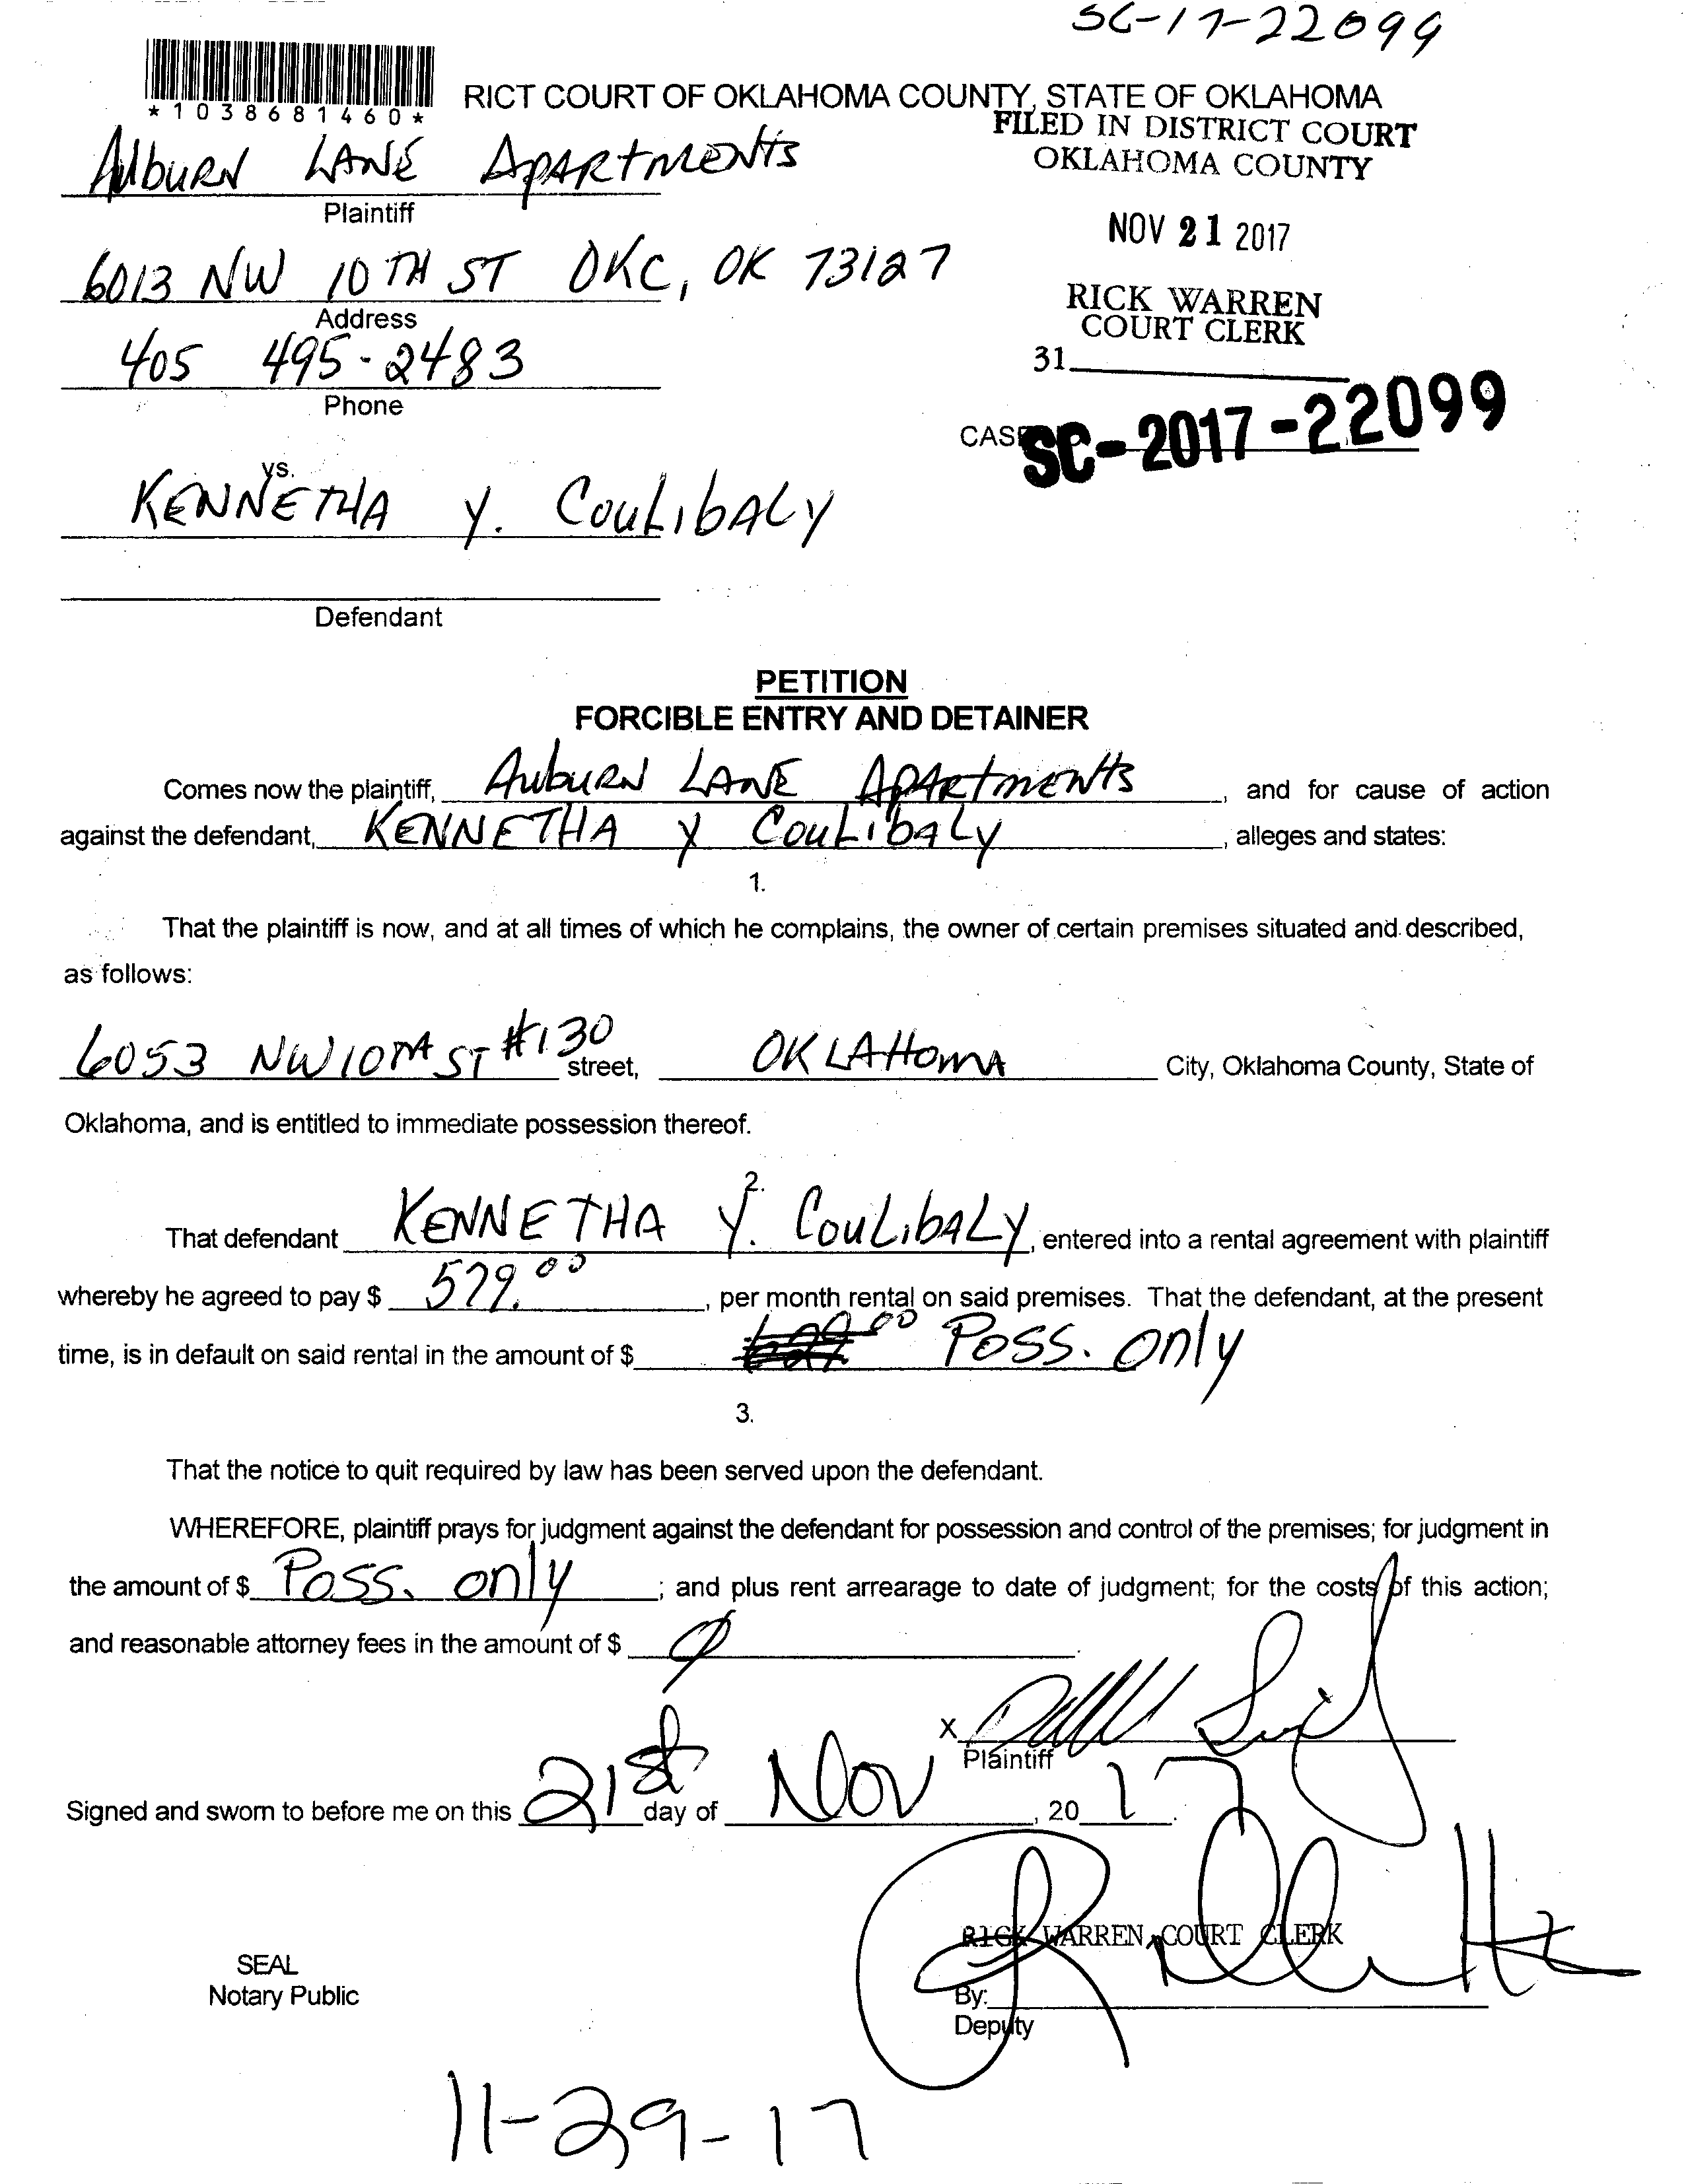 SC-17-22099
*1038681460*
RICT COURT OF OKLAHOMA COUNTY, STATE OF OKLAHOMA
FILED IN DISTRICT COURT
OKLAHOMA COUNTY
Auburn LANE APARtMENts
Plaintiff
NOV 21 2017
6013 NW 10TH ST OKC, OK 73127
Address
RICK WARREN
COURT CLERK
405 495-2483
Phone
31
CAS SC-2017-22099
vs.
KENNETHA Y. CouLibALy
Defendant
PETITION
FORCIBLE ENTRY AND DETAINER
Comes now the plaintiff, AuburN LANE APARtmENts, and for cause of action
against the defendant, KENNETHA Y CouLibaLy, alleges and states:
1.
That the plaintiff is now, and at all times of which he complains, the owner of certain premises situated and described,
as follows:
6053 NW 10TH ST #130 street, OKLAHomA City, Oklahoma County, State of
Oklahoma, and is entitled to immediate possession thereof.
2.
That defendant KENNETHA Y. CouLibALY, entered into a rental agreement with plaintiff
whereby he agreed to pay $ 579.00, per month rental on said premises. That the defendant, at the present
time, is in default on said rental in the amount of $ 00 Poss. only
3.
That the notice to quit required by law has been served upon the defendant.
WHEREFORE, plaintiff prays for judgment against the defendant for possession and control of the premises; for judgment in
the amount of $ Poss. only; and plus rent arrearage to date of judgment; for the costs of this action;
and reasonable attorney fees in the amount of $ 0.
X
Plaintiff
Signed and sworn to before me on this 21st day of Nov, 20 17.
RICK WARREN, COURT CLERK
SEAL
Notary Public
By:
Deputy
11-29-17